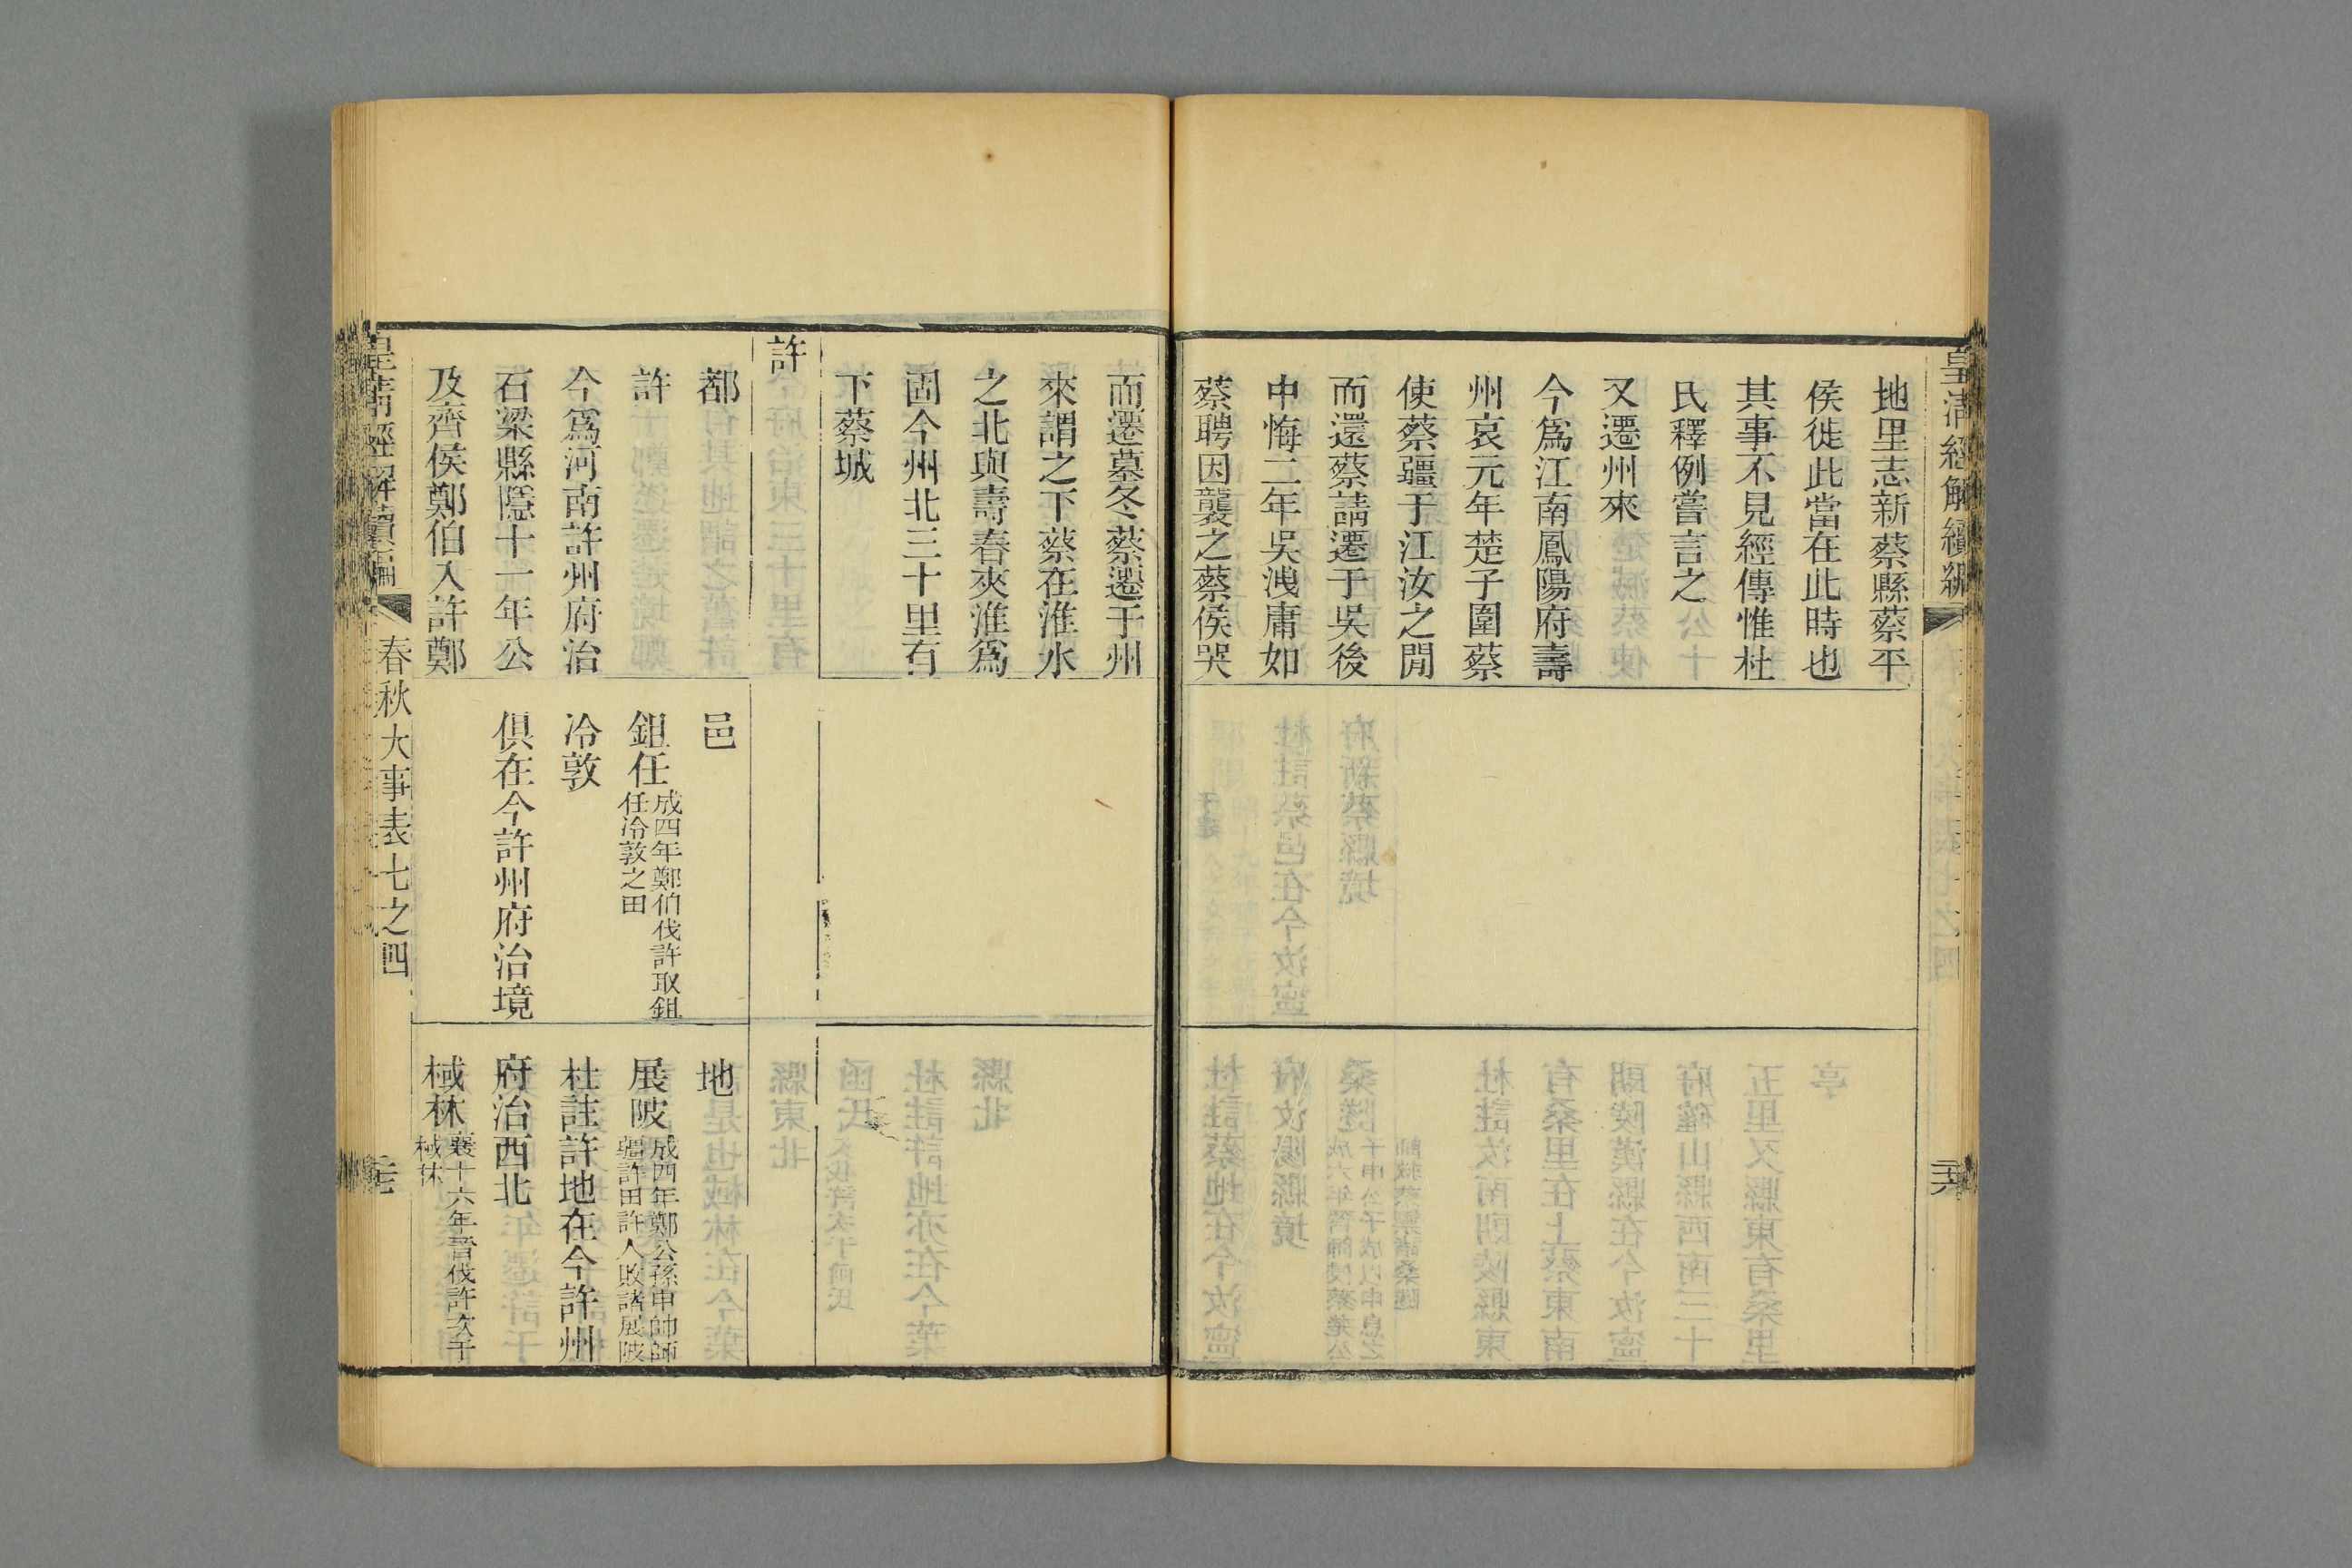 皇清經解續編
地里志新蔡縣蔡平
侯徙此當在此時也
其事不見經傳惟杜
氏釋例嘗言之
又遷州來
今爲江南鳳陽府壽
州哀元年楚子圍蔡
使蔡疆于江汝之閒
而還蔡請遷于吳後
中悔二年吳洩庸如
蔡聘因襲之蔡侯哭
而遷墓冬蔡遷于州
來謂之下蔡在淮水
之北與壽春夾淮爲
固今州北三十里有
下蔡城
許
都
許
今爲河南許州府治
石梁縣隱十一年公
及齊侯鄭伯入許鄭
邑
鉏任成四年鄭伯伐許取鉏
任冷敦之田
冷敦
俱在今許州府治境
地
展陂成四年鄭公孫申帥師
疆許田許人敗諸展陂
杜註許地在今許州
府治西北
棫林襄十六年晉伐許次于
棫林
皇清經解續編
春秋大事表七之四